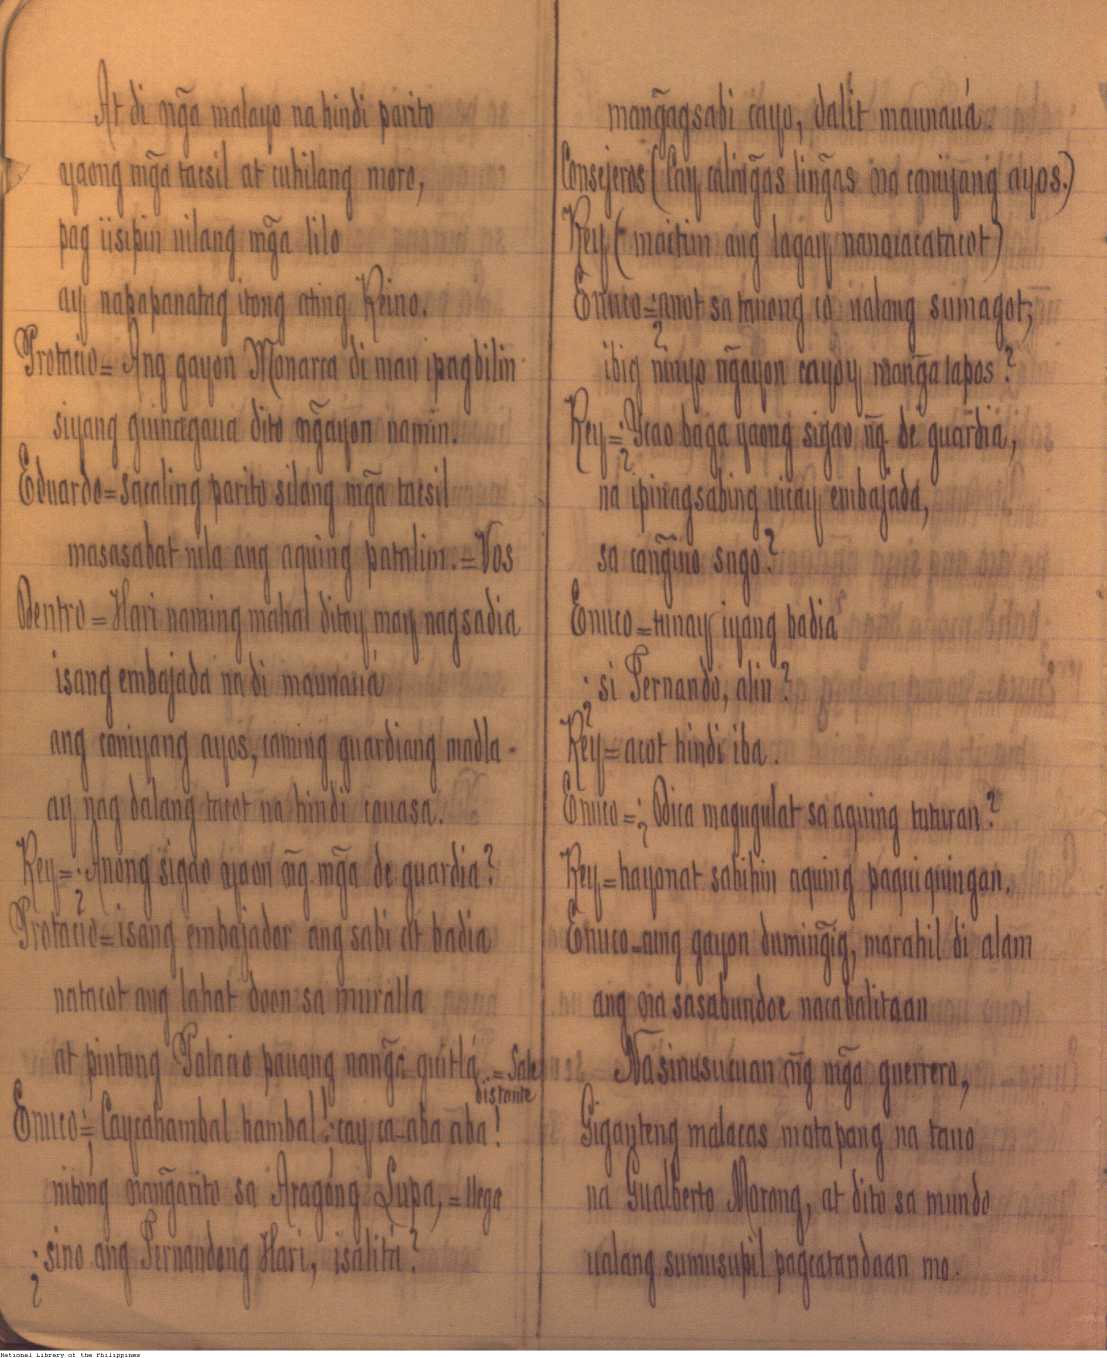 At di mg̃a malayo na hindi parito
yaong mg̃a taesil at cuhilang moro,
pag iisipin nilang mg̃a lilo
ay napapanatag itong ating Reino.
Protacio = Ang gayon Monarca di man ipagbilin
siyang guinagaua dito ng̃ayon namin.
Eduardo = Sacaling parito silang mg̃a taesil
masasabat nila ang aquing patalim. = Vos
Dentro = Hari naming mahal ditoy may nagsadia
isang embajada na di maunauá
ang caniyang ayos, caming guardiang madla -
ay nag dalang tacot na hindi cauasa.
Rey = ¿Anong sigao yaon nĝ mg̃a de guardia?
Protacio = isang embajador ang sabi at badia
natacot ang lahat doon sa muralla
at pintong Palacio pauang nang̃a guitlá. = Sale
distante
Enuco = ¡Caycahambal hambal! ¡cay ca-aba aba!
nitong nang̃arito sa Aragong Lupa, = llega
¿sino ang Fernandong Hari, isalita?
mang̃agsabi cayo, dalit maunauá.
Consejeros (Cay caling̃as ling̃as na caniyang ayos.)
Rey (maitim ang lagay nanacacatacot)
Enuco = ¿anot sa tanong co ualang sumagot;
ibig ninyo ng̃ayon cayoy mang̃a tapos?
Rey = ¿Ycao baga yaong sigao nĝ de guardia,
na ipinagsabing uicay embajada,
sa cang̃ino sugo?
Enuco = tunay iyang badia
¿si Fernando, alin?
Rey = acot hindi iba.
Enuco = ¿Dica magugulat sa aquing tuturan?
Rey = hayonat sabihin aquing paquiquingan.
Enuco = aung gayon duming̃ig, marahil di alam
ang na sasabundoc nacabalitaan
Nasinusucuan nĝ mg̃a guerrero,
Gigayteng malacas matapang na tauo
na Gualberto Morong, at dito sa mundo
ualang sumusupil pagcatandaan mo.
National Library of the Philippines